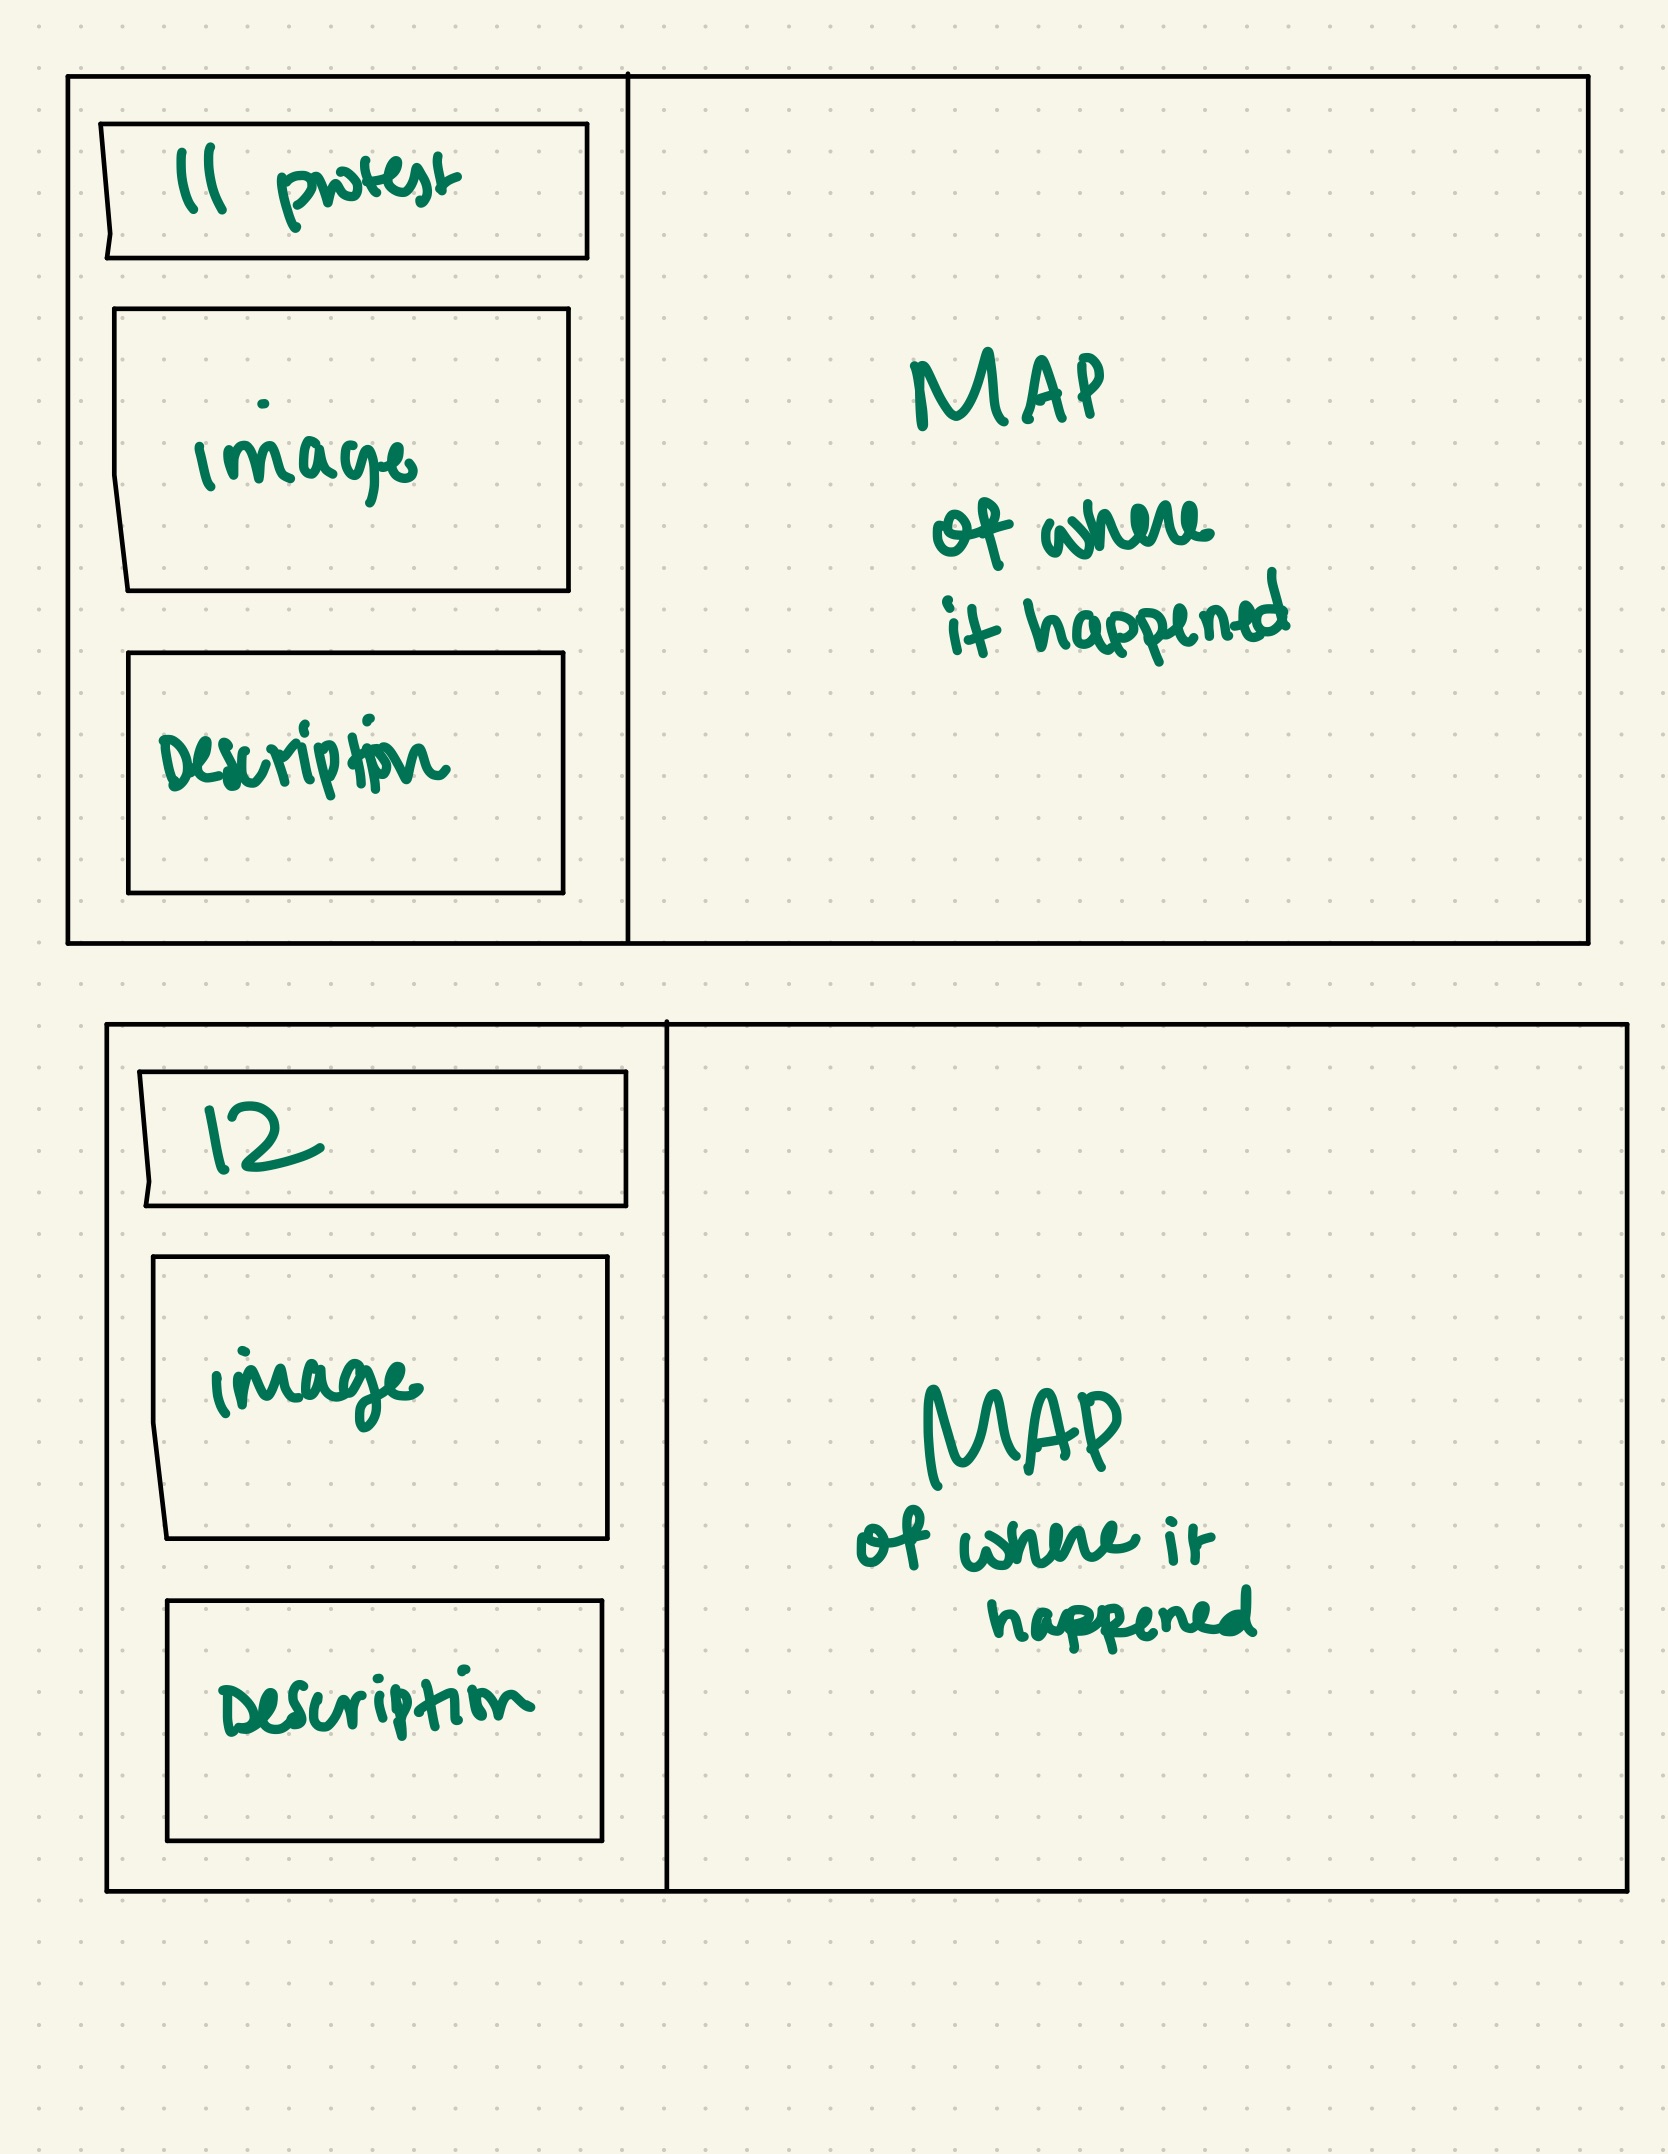 11 protest
image
Description
MAP
of where
it happened
12
image
Description
MAP
of where it
happened